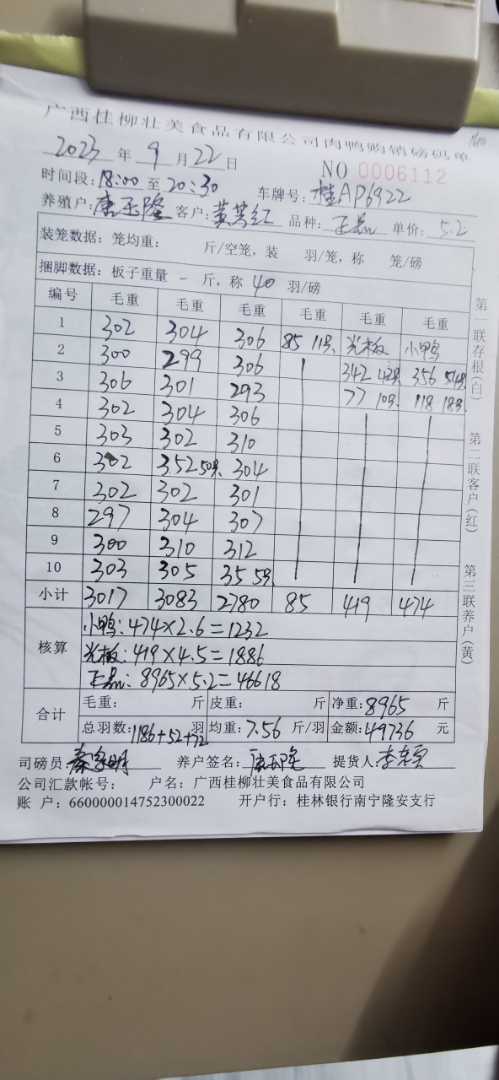 广西桂柳壮美食品有限公司肉鸭购销磅码单
2023 年 9 月 22 日
NO 0006112
时间段: 18:00 至 20:30 车牌号: 桂AP6922
养殖户: 客户: 黄芙红 品种: 正品 单价: 5.2
装笼数据: 笼均重: 斤/空笼, 装 羽/笼, 称 笼/磅
捆脚数据: 板子重量 一 斤, 称 40 羽/磅
编号 毛重 毛重 毛重 毛重 毛重 毛重
1 302 304 306 85 11只 光板 小鸭
2 300 299 306 342 42只 356 54只
3 306 301 293 77 10只 118 18只
4 302 304 306
5 303 302 310
6 302 352 50只 304
7 302 302 301
8 297 304 307
9 300 310 312
10 303 305 35 5只
小计 3017 3083 2780 85 419 474
核算
小鸭: 474×2.6=1232
光板: 419×4.5=1886
正品: 8965×5.2=46618
合计 毛重: 斤 皮重: 斤 净重: 8965 斤
总羽数: 1186+52+72 羽 均重: 7.56 斤/羽 金额: 49736 元
司磅员: 养户签名: 提货人:
公司汇款帐号: 户名: 广西桂柳壮美食品有限公司
账 户: 660000014752300022 开户行: 桂林银行南宁隆安支行
第一联存根(白) 第二联客户(红) 第三联养户(黄)